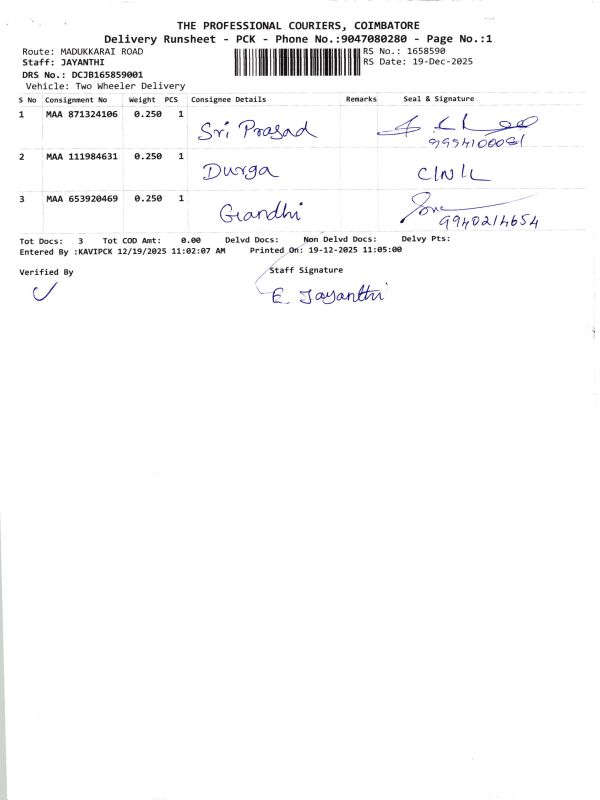 THE PROFESSIONAL COURIERS, COIMBATORE
Delivery Runsheet - PCK - Phone No.:9047080280 - Page No.:1
Route: MADUKKARAI ROAD RS No.: 1658590
Staff: JAYANTHI RS Date: 19-Dec-2025
DRS No.: DCJB165859001
Vehicle: Two Wheeler Delivery
S No Consignment No Weight PCS Consignee Details Remarks Seal & Signature
1 MAA 871324106 0.250 1 Sri Prasad
2 MAA 111984631 0.250 1 Durga
3 MAA 653920469 0.250 1 Gandhi
9940214654
Tot Docs: 3 Tot COD Amt: 0.00 Delvd Docs: Non Delvd Docs: Delvy Pts:
Entered By :KAVIPCK 12/19/2025 11:02:07 AM Printed On: 19-12-2025 11:05:00
Verified By Staff Signature
E. Jayanthi